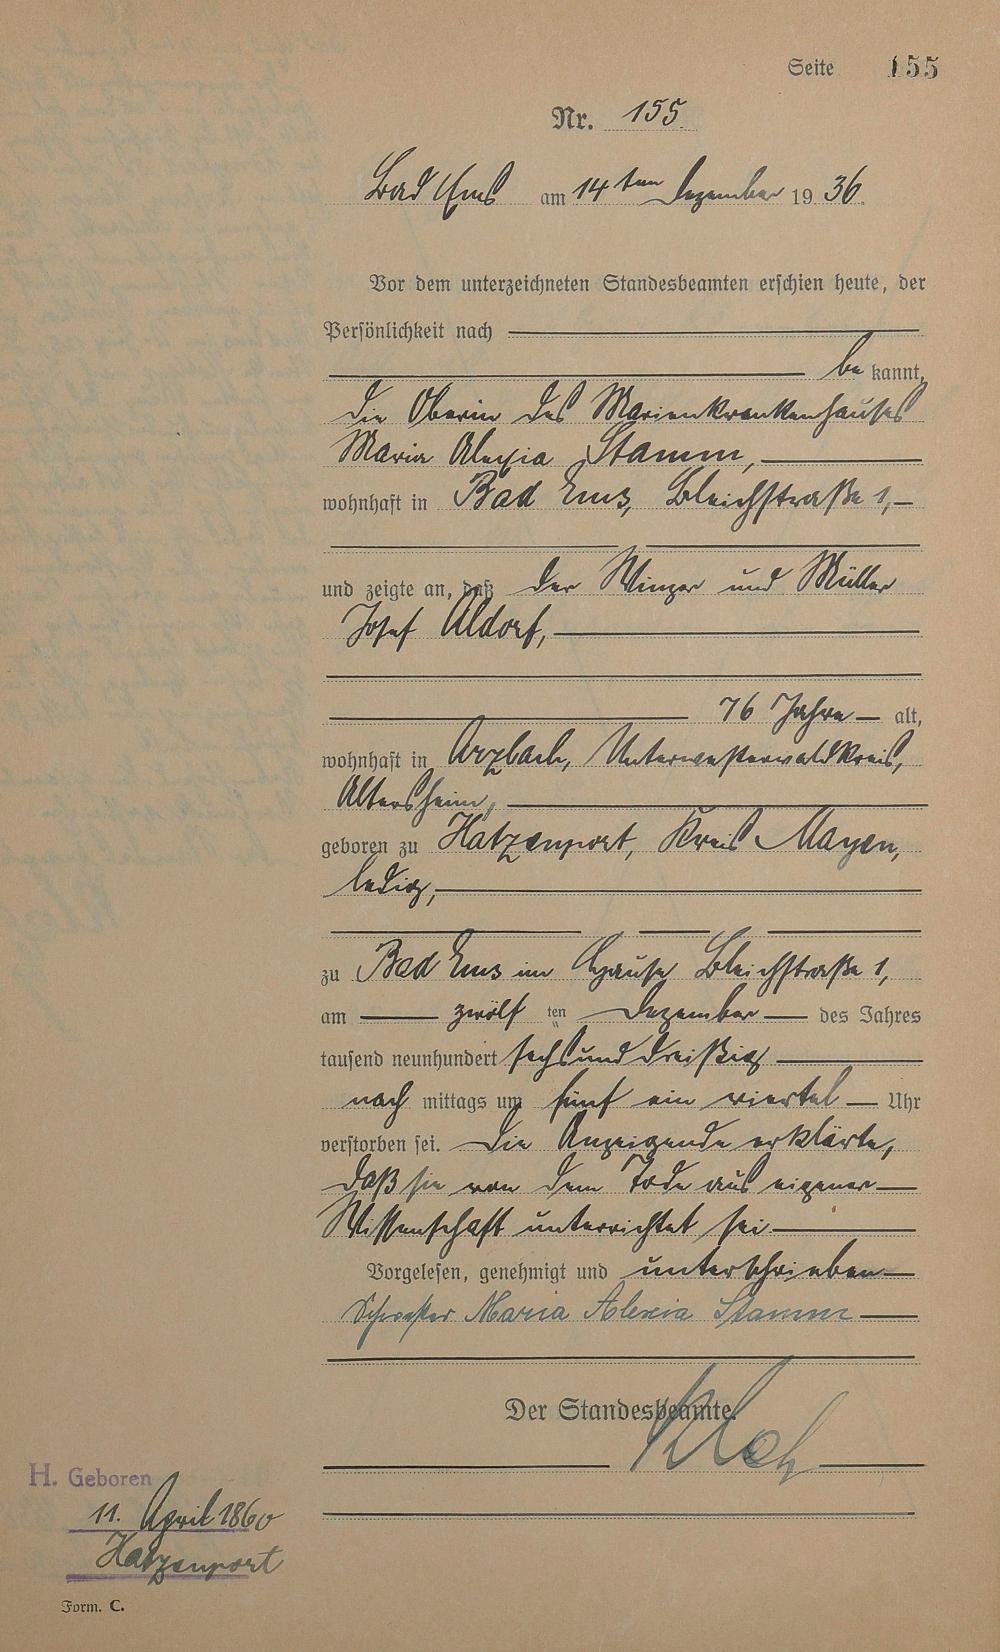 Seite 155
Nr. 155
Bad Ems am 14ten Dezember 1936.
Vor dem unterzeichneten Standesbeamten erschien heute, der
Persönlichkeit nach
be kannt,
die Oberin des Marienkrankenhauses
Maria Alexia Stamm,
wohnhaft in Bad Ems, Bleichstraße 1,
und zeigte an, daß der Winzer und Müller
Josef Aldorf,
76 Jahre alt,
wohnhaft in Arzbach, Unterwesterwaldkreis,
Altersheim,
geboren zu Hatzenport, Kreis Mayen,
ledig,
zu Bad Ems im Hause Bleichstraße 1,
am zwölf ten Dezember des Jahres
tausend neunhundert sechsunddreißig
nach mittags um fünf ein viertel Uhr
verstorben sei. Die Anzeigende erklärte,
daß sie von dem Tode aus eigener
Wissenschaft unterrichtet sei
Vorgelesen, genehmigt und unterschrieben
Schwester Maria Alexia Stamm
Der Standesbeamte.
H. Geboren
11. April 1860
Hatzenport
Form. C.